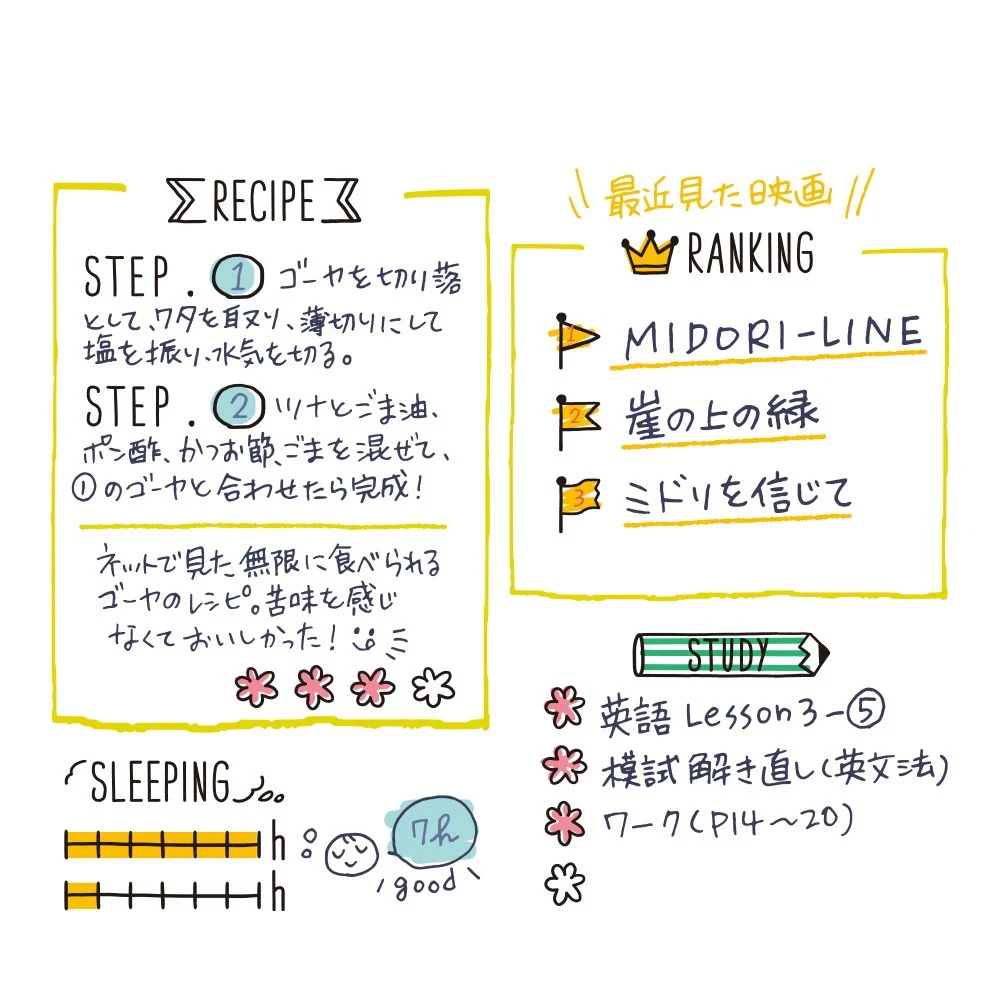 RECIPE
STEP. 1 ゴーヤを切り落
として、ワタを取り、薄切りにして
塩を振り、水気を切る。
STEP. 2 ツナとごま油、
ポン酢、かつお節、ごまを混ぜて、
①のゴーヤと合わせたら完成!
ネットで見た無限に食べられる
ゴーヤのレシピ。苦味を感じ
なくておいしかった!
SLEEPING
h
h
7h
good
最近見た映画
RANKING
1 MIDORI-LINE
2 崖の上の緑
3 ミドリを信じて
STUDY
英語 Lesson3-⑤
模試解き直し(英文法)
ワーク(P14〜20)